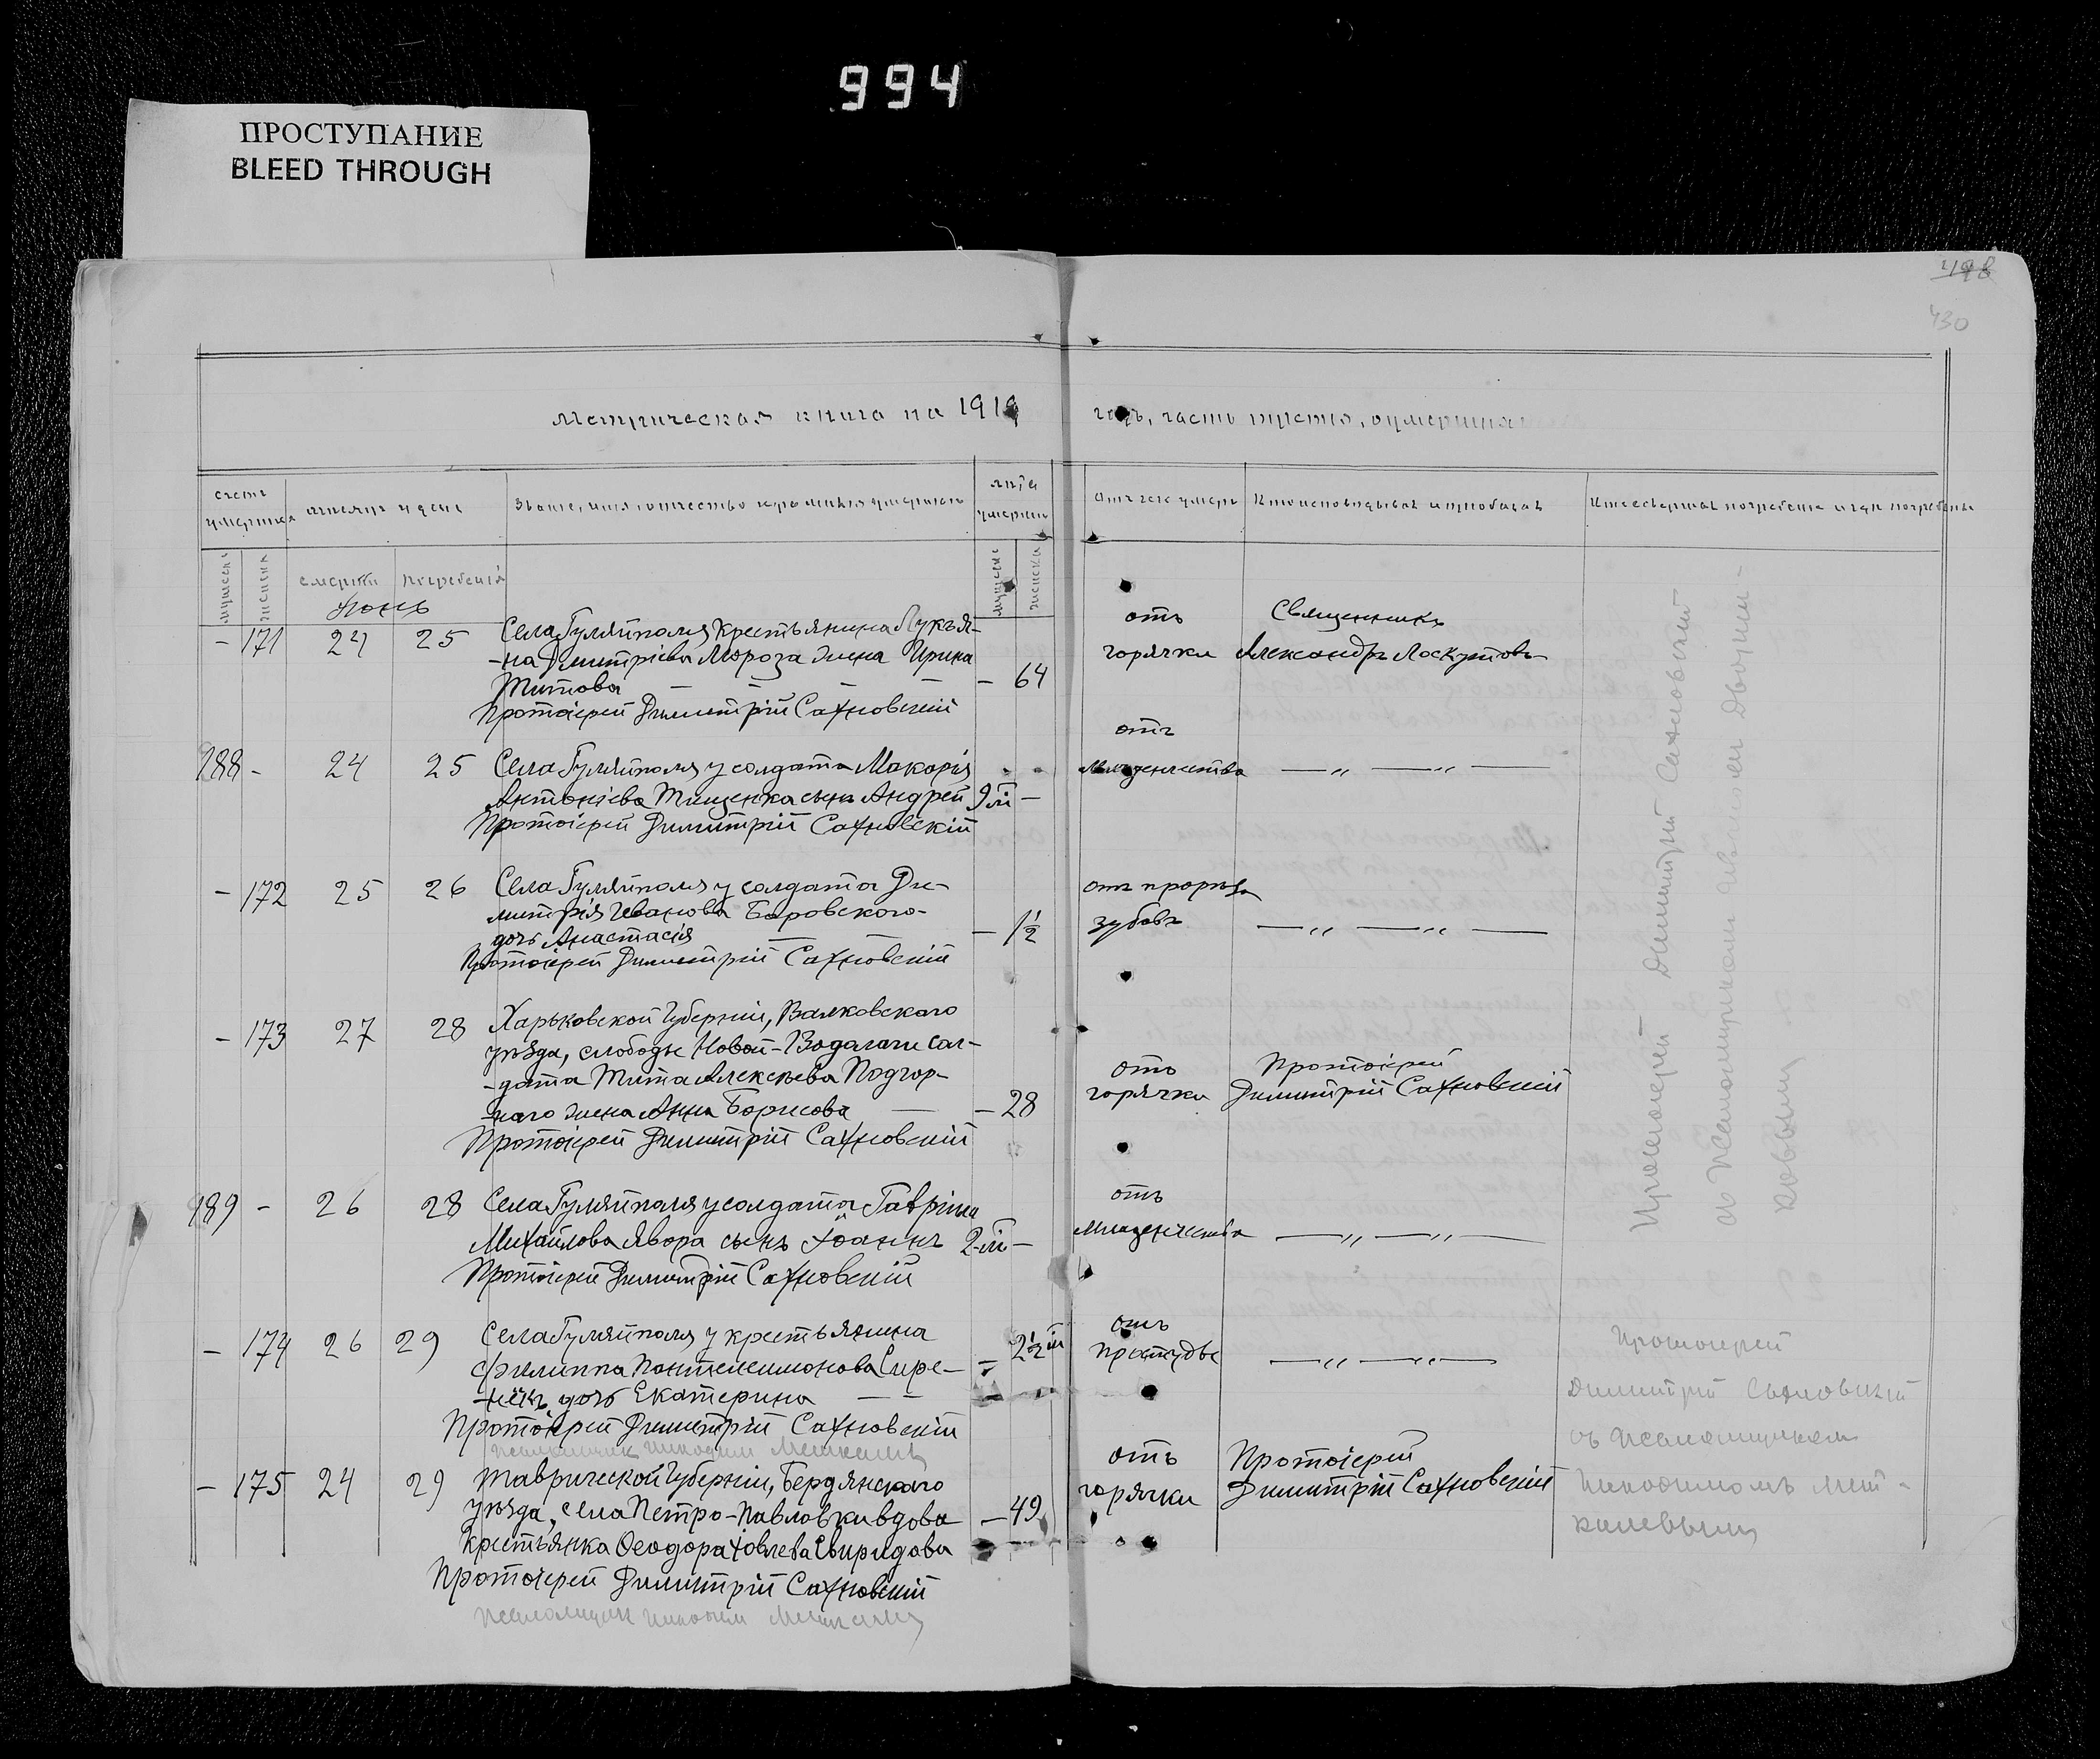 994
ПРОСТУПАНИЕ
BLEED THROUGH
430
Метрическая книга на 1919 годъ, часть третья, умершихъ
счетъ умершихъ
мѣсяцъ и день
Званіе, имя, отчество и фамилія умершаго
лѣта умершаго
Отъ чего умеръ
Кто исповѣдывалъ и пріобщалъ
Кто совершалъ погребеніе и гдѣ погребены
мужеска
женска
смерти
погребенія
мужеска
женска
Іюнь
- 171 24 25 Села Гуляйполя крестьянина Лукья-
-на Димитріева Мороза жена Ирина
Титова - 64
Протоіерей Димитрій Сахновскій
отъ
горячки
Священникъ
Александръ Лоскутовъ
188 - 24 25 Села Гуляйполя у солдата Макарія
Антоніева Тищенка сынъ Андрей 9 м -
Протоіерей Димитрій Сахновскій
отъ
младенчества
— „ — „ —
- 172 25 26 Села Гуляйполя у солдата Ди-
митрія Иванова Боровского
дочь Анастасія - 1½
Протоіерей Димитрій Сахновскій
отъ прорѣза
зубовъ
— „ — „ —
- 173 27 28 Харьковской Губерніи, Валковскаго
уѣзда, слободы Новой-Водолаги сол-
-дата Тита Алексѣева Подгор-
-наго жена Анна Борисова - 28
Протоіерей Димитрій Сахновскій
отъ
горячки
Протоіерей
Димитрій Сахновскій
189 - 26 28 Села Гуляйполя у солдата Гавріила
Михайлова Явора сынъ Іоаннъ 2 м -
Протоіерей Димитрій Сахновскій
отъ
младенчества
— „ — „ —
- 174 26 29 Села Гуляйполя у крестьянина
Филиппа Пантелеимонова Сире-
дочь Екатерина - 2½ м
Протоіерей Димитрій Сахновскій
псаломщик Никодим
отъ
простуды
— „ — „ —
- 175 24 29 Таврической Губерніи, Бердянскаго
уѣзда, села Петро-Павловки вдова - 49
крестьянка Феодора Іовлева Свиридова
Протоіерей Димитрій Сахновскій
псаломщик Никодим
отъ
горячки
Протоіерей
Димитрій Сахновскій
Протоіерей Димитрій Сахновскій
съ псаломщикомъ
Протоіерей
Димитрій Сахновскій
съ псаломщикомъ
Никодимомъ